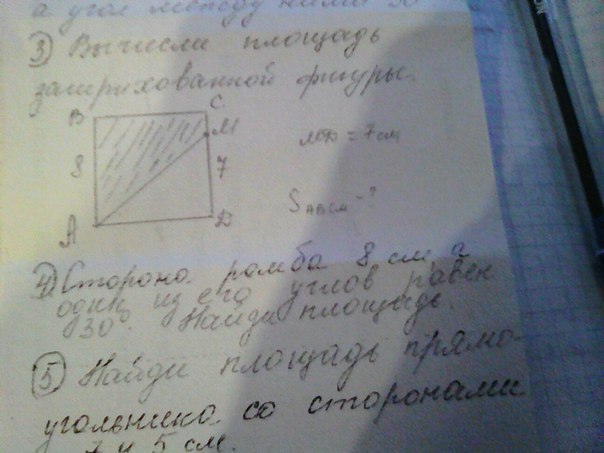 а угол между ними 30
3) Вычисли площадь
заштрихованной фигуры.
B C
M
8 7
A D
MD = 7 см
S ABCM - ?
4) Сторона ромба 8 см, а
один из его углов равен
30°. Найди площадь.
5) Найди площадь прямо-
угольника со сторонами
и 5 см.